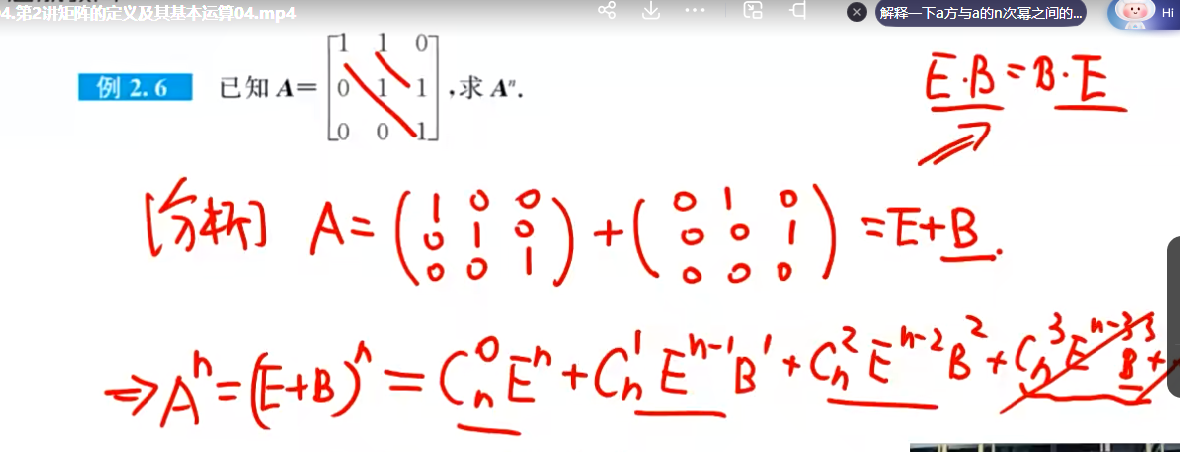 4.第2讲矩阵的定义及其基本运算04.mp4
解释一下a方与a的n次幂之间的...
Hi
例 2.6 已知 A= [1 1 0; 0 1 1; 0 0 1] ,求 Aⁿ.
E·B=B·E
[分析] A= (1 0 0; 0 1 0; 0 0 1) + (0 1 0; 0 0 1; 0 0 0) =E+B.
⇒Aⁿ=(E+B)ⁿ = Cₙ⁰Eⁿ+Cₙ¹Eⁿ⁻¹B¹+Cₙ²Eⁿ⁻²B²+Cₙ³Eⁿ⁻³B³+